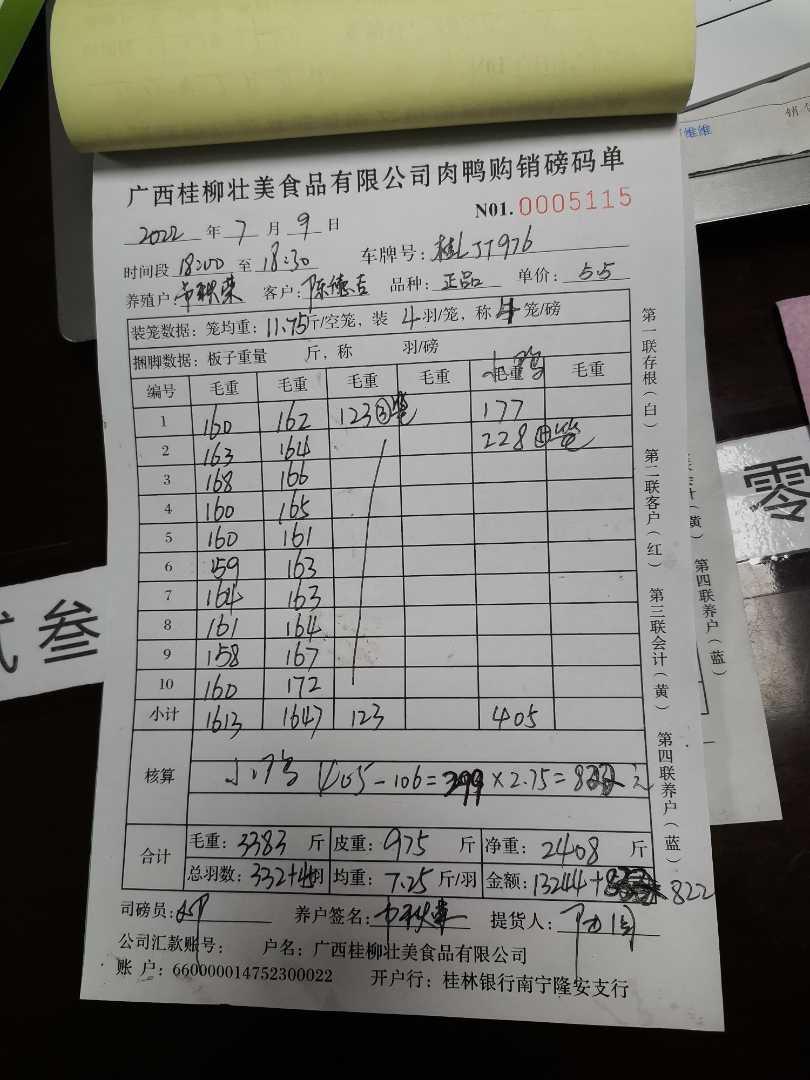 广西桂柳壮美食品有限公司肉鸭购销磅码单
N01.0005115
2022 年 7 月 9 日
时间段 18:00 至 18:30 车牌号: 桂L JT976
养殖户: 客户: 陈德吉 品种: 正品 单价: 5.5
装笼数据: 笼均重: 11.75斤/空笼, 装 4 羽/笼, 称 4 笼/磅
捆脚数据: 板子重量 斤, 称 羽/磅
编号 毛重 毛重 毛重 毛重 小鸭 毛重 毛重
1 160 162 123 ③笼 177
2 163 164 228 ④笼
3 168 166
4 160 165
5 160 161
6 159 163
7 164 163
8 161 164
9 158 167
10 160 172
小计 1613 1647 123 405
核算 小鸭 405-106=299×2.75=822元
合计 毛重: 3383 斤 皮重: 975 斤 净重: 2408 斤
总羽数: 332+45羽 均重: 7.25斤/羽 金额: 13244+822
司磅员: 养户签名: 提货人:
公司汇款账号: 户名: 广西桂柳壮美食品有限公司
账 户: 660000014752300022 开户行: 桂林银行南宁隆安支行
第一联存根(白) 第二联客户(红) 第三联会计(黄) 第四联养户(蓝)
第四联养户(蓝)
维维
销
叁
零